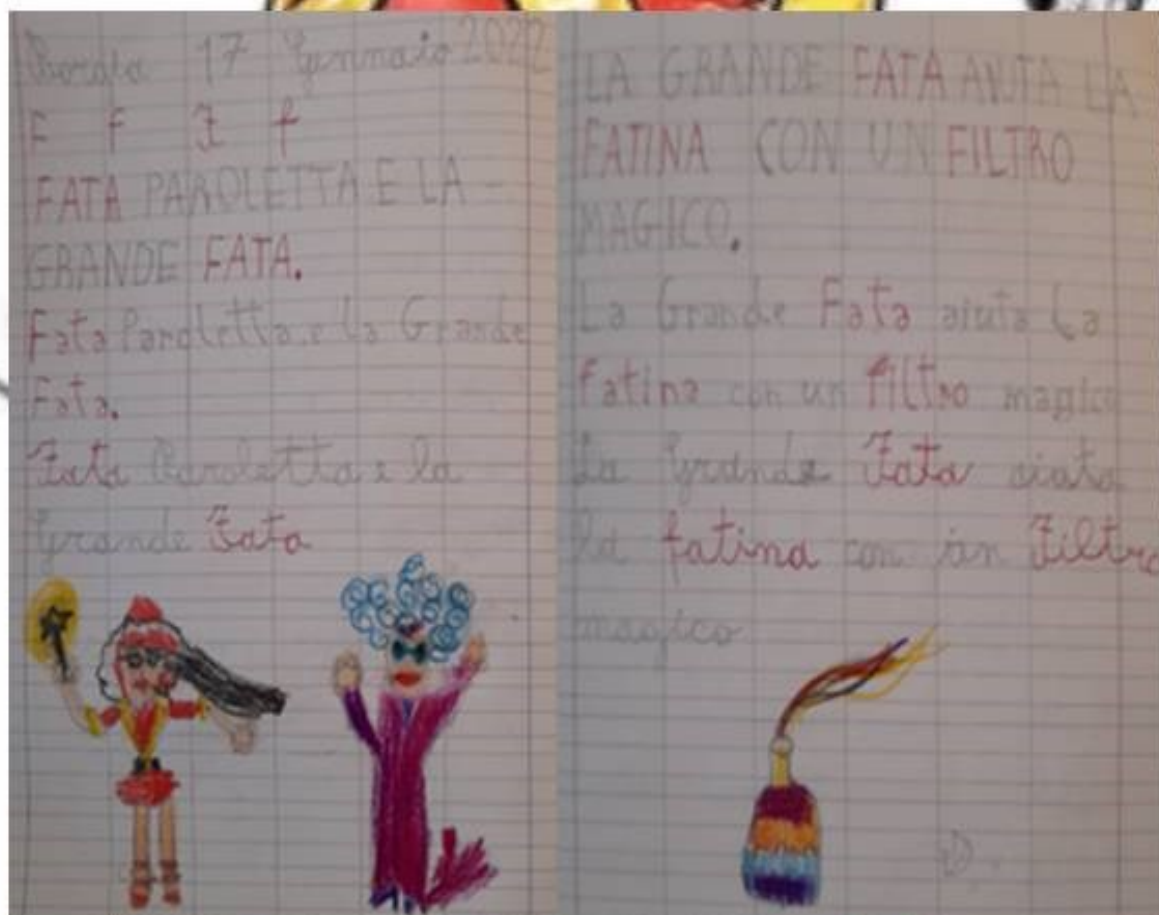 Borgia 17 Gennaio 2022
F f F f
FATA PAROLETTA E LA
GRANDE FATA.
Fata Paroletta e la Grande
Fata.
Fata Paroletta e la
grande Fata
LA GRANDE FATA AIUTA LA
FATINA CON UN FILTRO
MAGICO.
La Grande Fata aiuta la
fatina con un filtro magico
La grande Fata aiuta
la fatina con un Filtro
magico